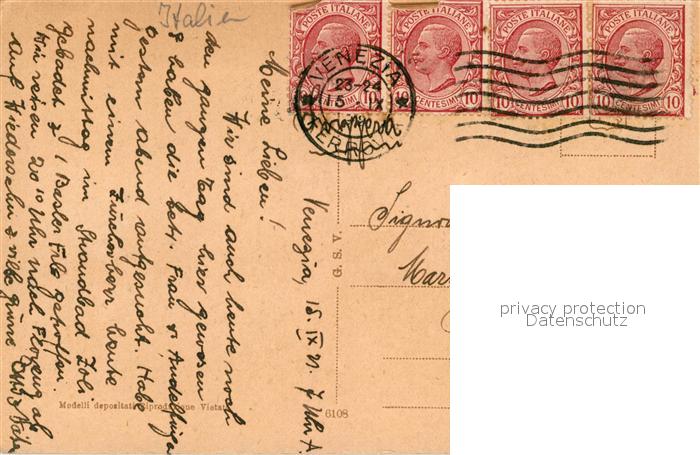 Italien
POSTE ITALIANE
POSTE ITALIANE
POSTE ITALIANE
POSTE ITALIANE
10 CENTESIMI 10
10 CENTESIMI 10
10 CENTESIMI 10
VENEZIA
23-24
15 IX
FERROVIA
Venezia, 15. IX 21. 7 Uhr A.
Meine Lieben!
Wir sind auch heute noch
den ganzen Tag hier gewesen
& haben die betr. Frau v. Andelfingen
gestern abend aufgesucht. Habe
mit einem Zürcherherr heute
nachmittag im Strandbad
gebadet & 1 Basler Frl. getroffen.
Wir reisen 20 10 Uhr nach Florenz ab
Auf Wiedersehn & viele Grüsse
Signor
Mar
G. A. S. V.
Modelli depositati Riproduzione Vietata
6108
privacy protection
Datenschutz